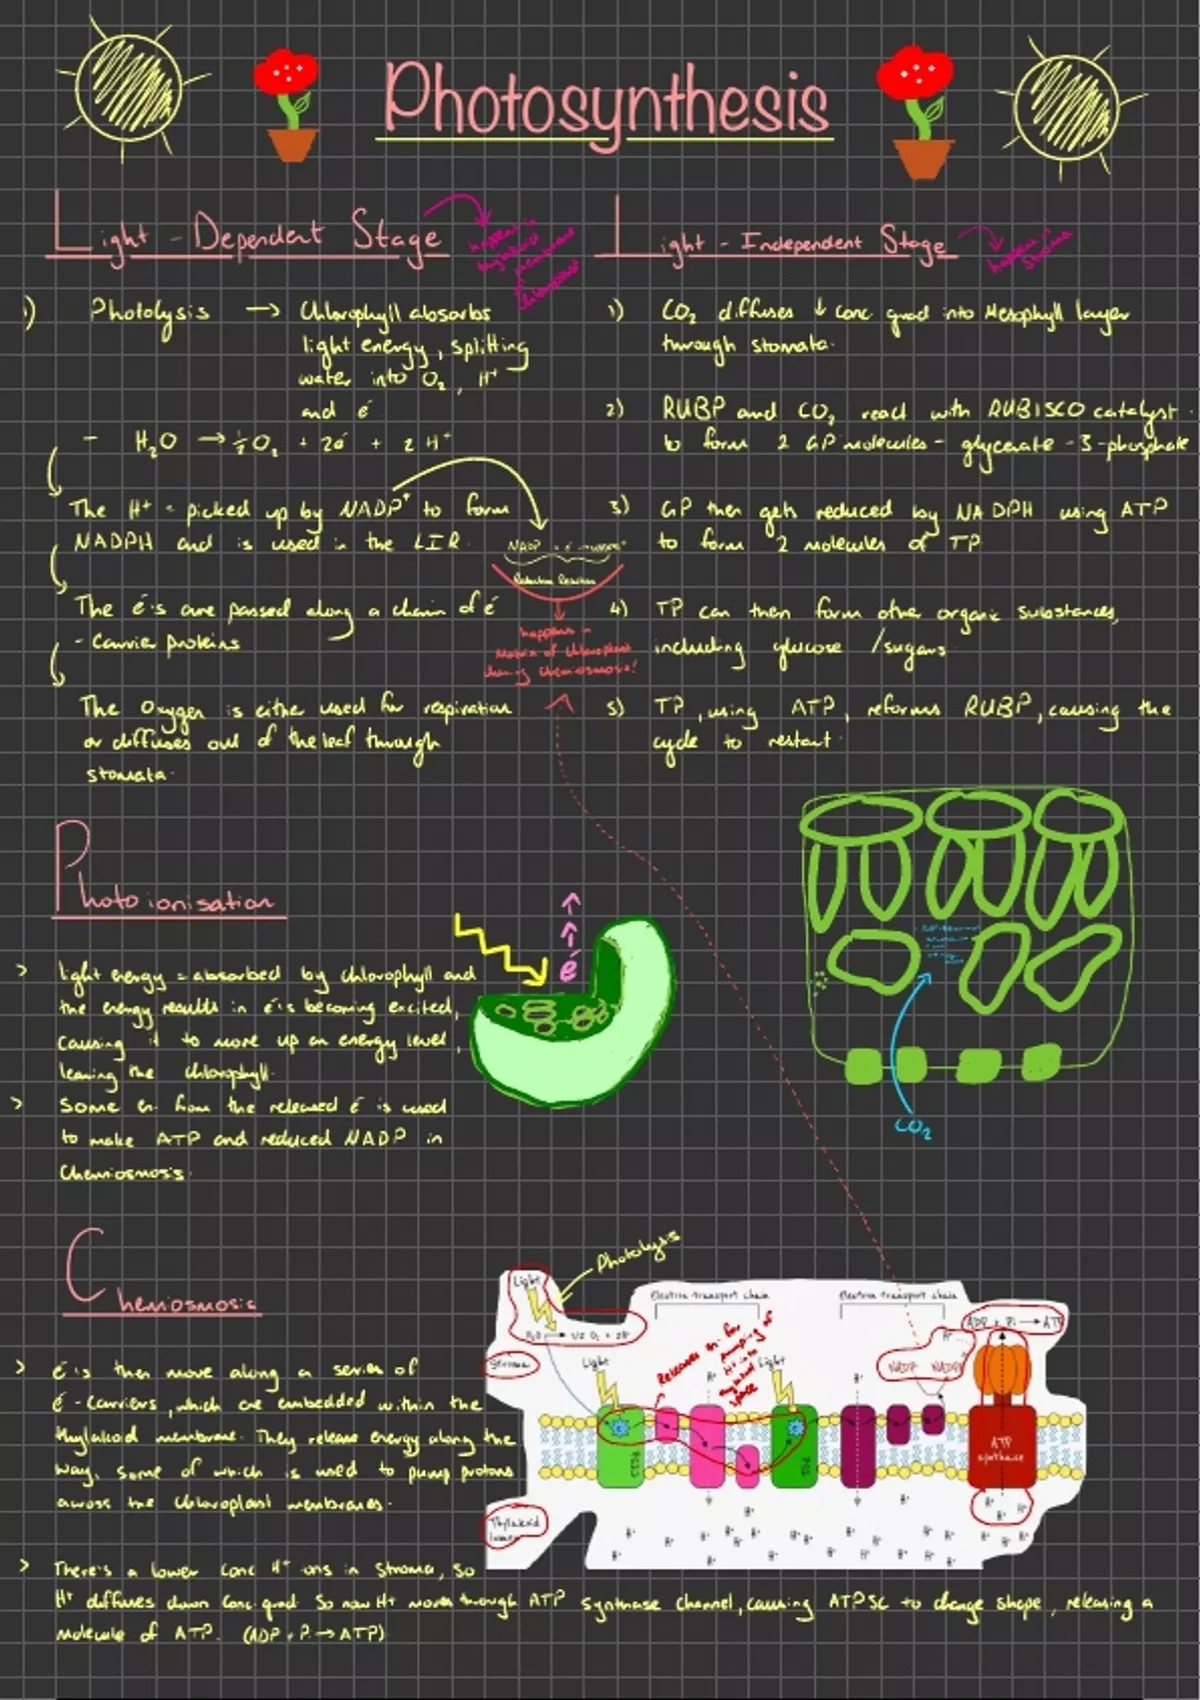 Photosynthesis
Light - Dependent Stage
happens in
thylakoid
membrane
of
chloroplast
1) Photolysis → Chlorophyll absorbs
light energy, splitting
water into O₂, H⁺
and é
- H₂O → ½O₂ + 2é + 2H⁺
The H⁺ = picked up by NADP⁺ to form
NADPH and is used in the LIR.
Reduction Reaction
happens in
matrix of chloroplast
during chemiosmosis!
The é's are passed along a chain of é
- Carrier proteins
The Oxygen is either used for respiration
or diffuses out of the leaf through
stomata.
Light - Independent Stage
happens in
stroma
1) CO₂ diffuses ↓ conc grad into Mesophyll layer
through stomata.
2) RUBP and CO₂ react with RUBISCO catalyst
to form 2 GP molecules - glycerate -3-phosphate
3) GP then gets reduced by NADPH using ATP
to form 2 molecules of TP
4) TP can then form other organic substances,
including glucose /sugars.
5) TP, using ATP, reforms RUBP, causing the
cycle to restart.
Photoionisation
> light energy = absorbed by chlorophyll and
the energy results in é's becoming excited,
causing it to move up an energy level,
leaving the chlorophyll.
> Some en. from the released é is used
to make ATP and reduced NADP in
Chemiosmosis.
é
CO₂
Chemiosmosis
> é's then move along a series of
é-carriers, which are embedded within the
thylakoid membrane. They release energy along the
way, some of which is used to pump protons
across the chloroplast membranes.
> There's a lower conc H⁺ ions in Stroma, so
H⁺ diffuses down conc grad. So now H⁺ moves through ATP synthase channel, causing ATPSC to change shape, releasing a
molecule of ATP. (ADP + Pi → ATP)
Photolysis
Light
H₂O → 1/2 O₂ + 2H⁺
Electron transport chain
Electron transport chain
ADP + Pi → ATP
Stroma
Light
Releases en. for
pumping of
H⁺ into
thylakoid
space
Light
H⁺
H⁺
H⁺
NADP NADPH
PS2
PS1
ATP
synthase
Thylakoid
lumen
H⁺ H⁺ H⁺